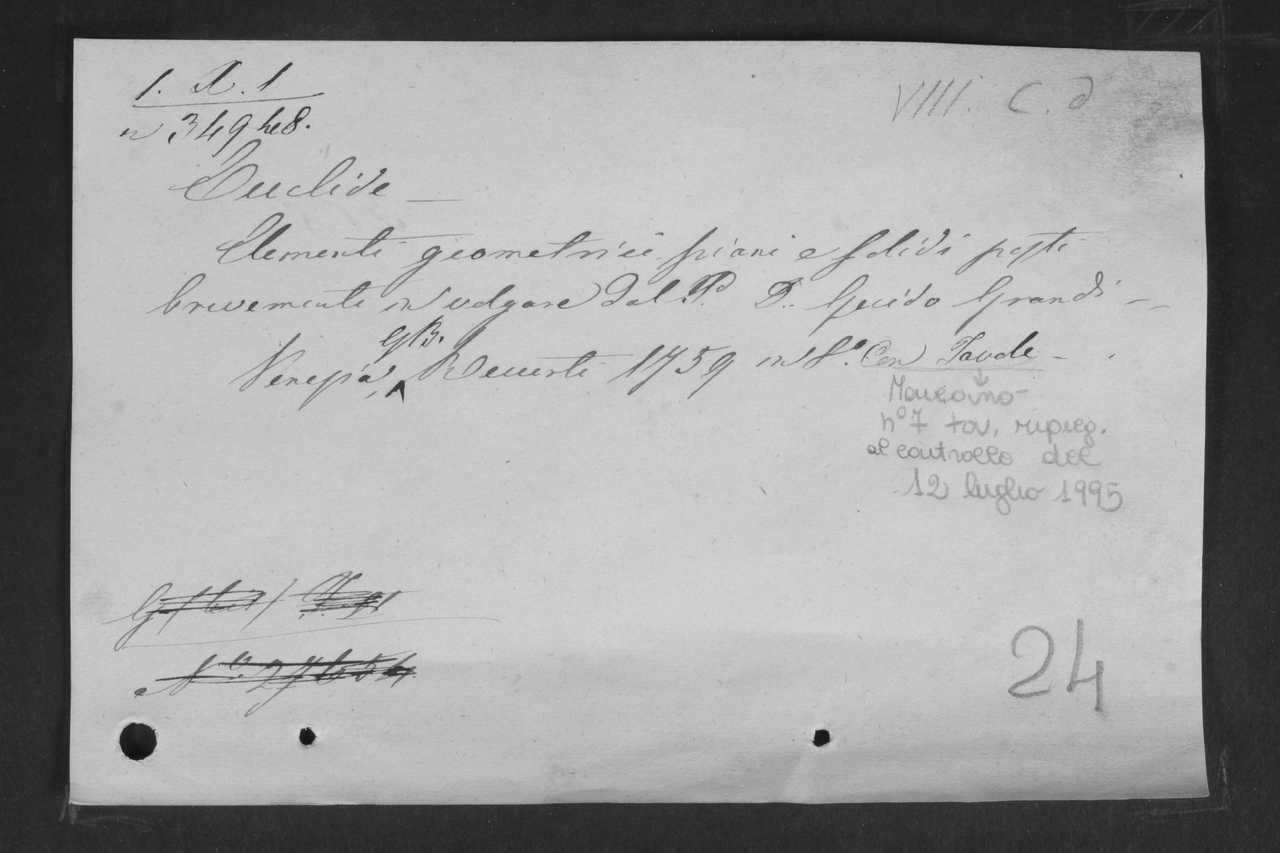 1. A. 1
VIII. C. d
n 349
Euclide —
Elementi geometrici piani e solidi posti
brevemente in volgare dal P. D. Guido Grandi —
Venezia, GB. Recurti 1759 in 8.º Con Tavole —
Mancano
nº 7 tav. ripieg.
al controllo del
12 luglio 1995
24